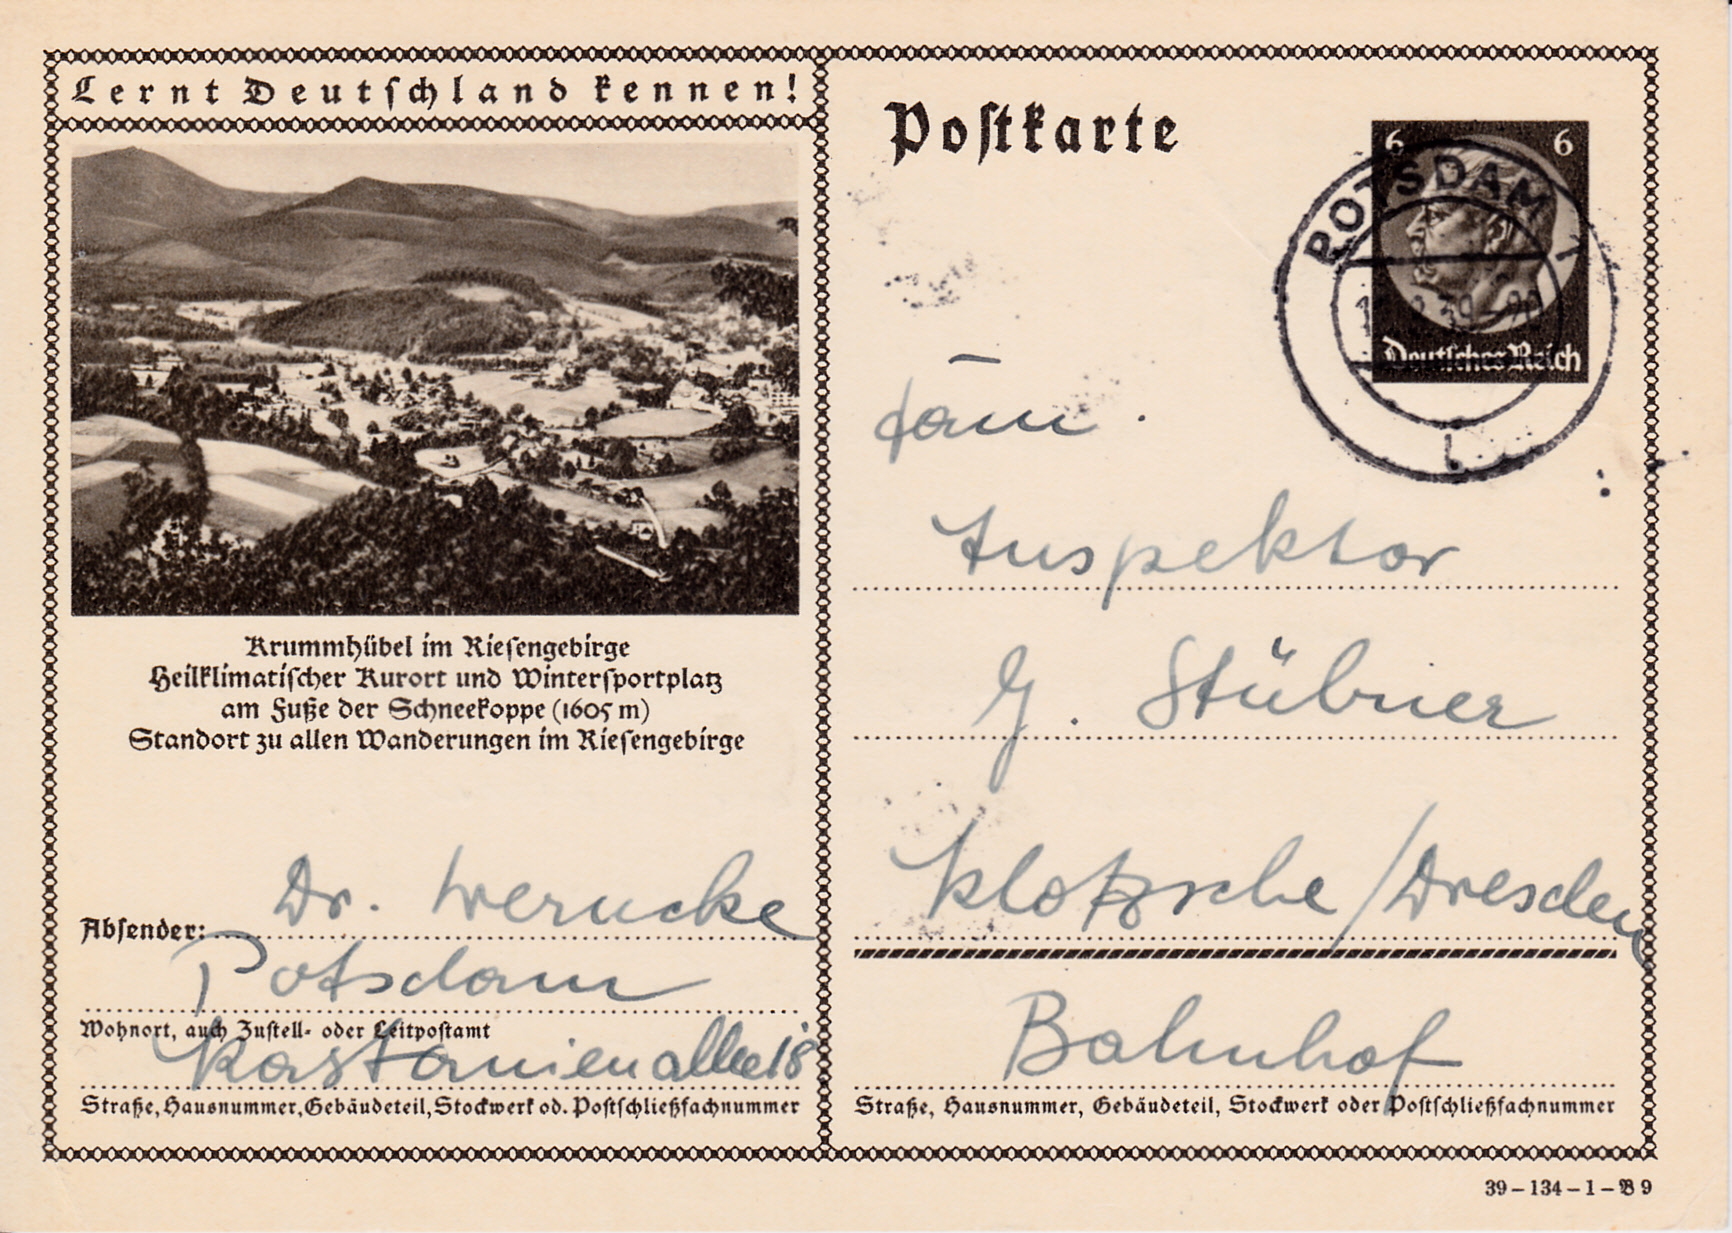 Lernt Deutschland kennen!
Krummhübel im Riesengebirge
Heilklimatischer Kurort und Wintersportplatz
am Fuße der Schneekoppe (1605 m)
Standort zu allen Wanderungen im Riesengebirge
Absender: Dr. Wernecke
Potsdam
Wohnort, auch Zustell- oder Leitpostamt
Kastanienallee 18
Straße, Hausnummer, Gebäudeteil, Stockwerk od. Postschließfachnummer
Postkarte
6 6
Deutsches Reich
POTSDAM 1
Inspektor
G. Stübner
Klotzsche/Dresden
Bahnhof
Straße, Hausnummer, Gebäudeteil, Stockwerk oder Postschließfachnummer
39-134-1-B 9